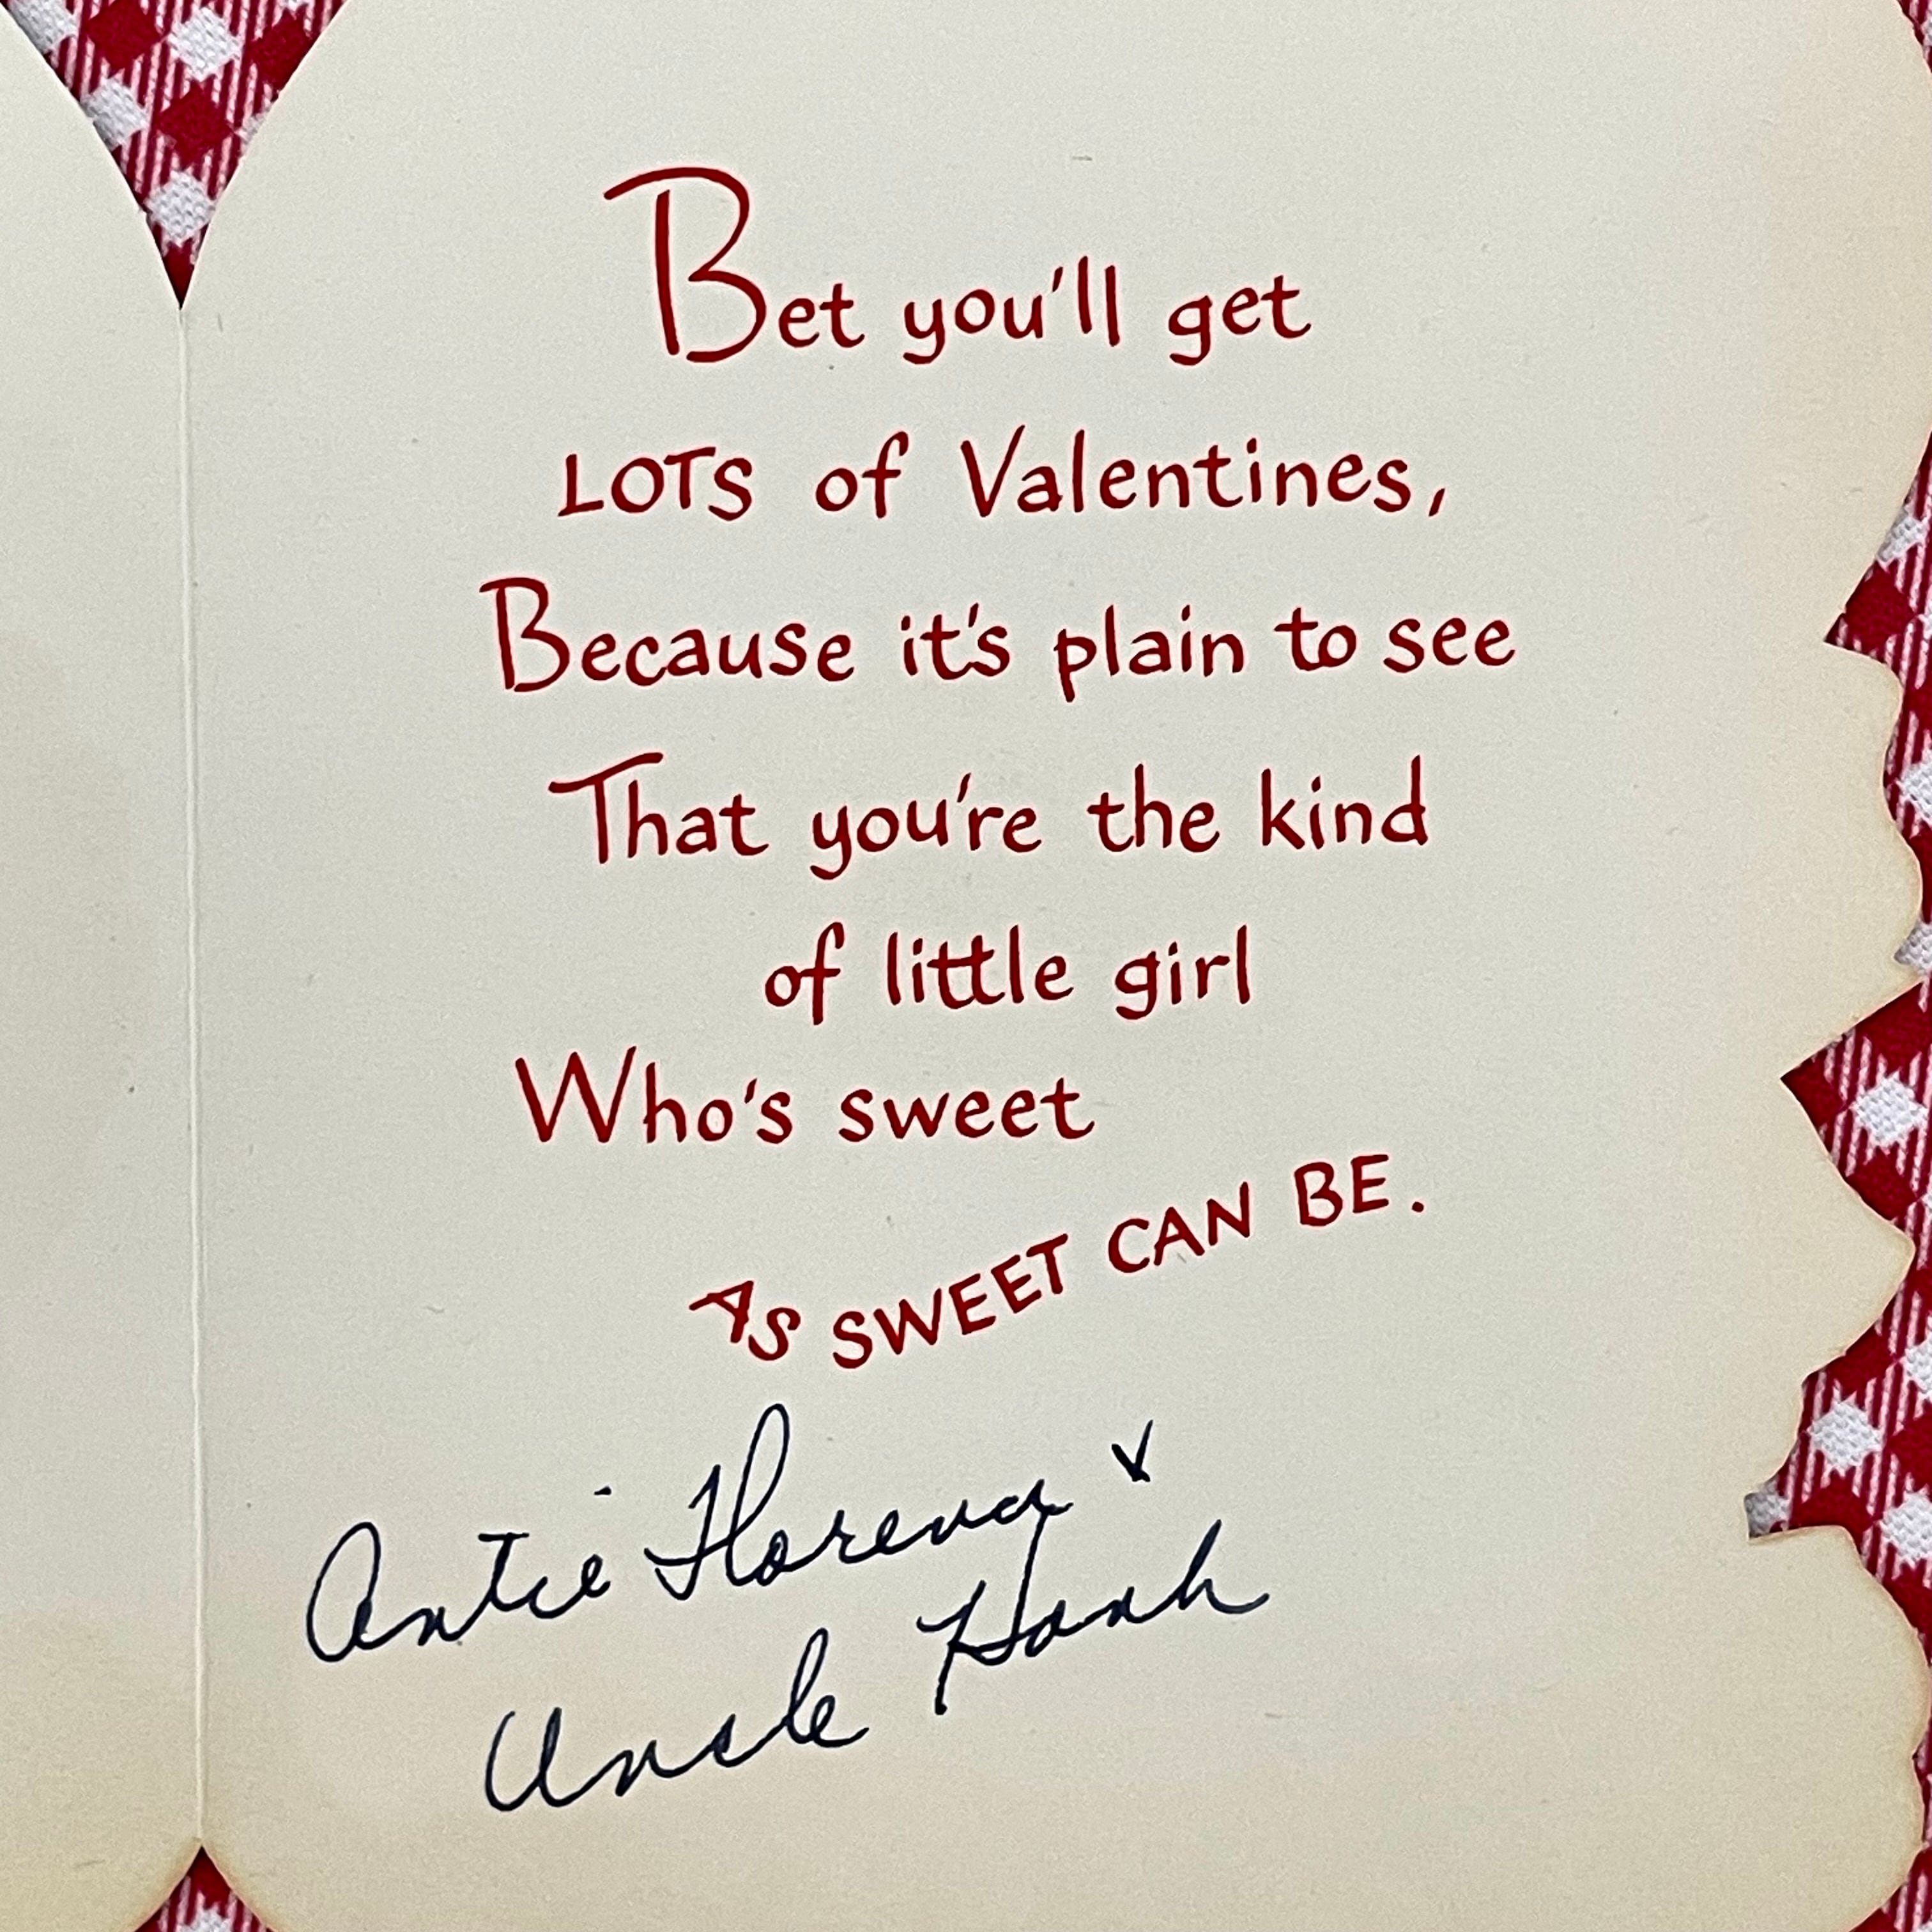 Bet you'll get
LOTS of Valentines,
Because it's plain to see
That you're the kind
of little girl
Who's sweet
AS SWEET CAN BE.
Antie Florena &
Uncle Hank